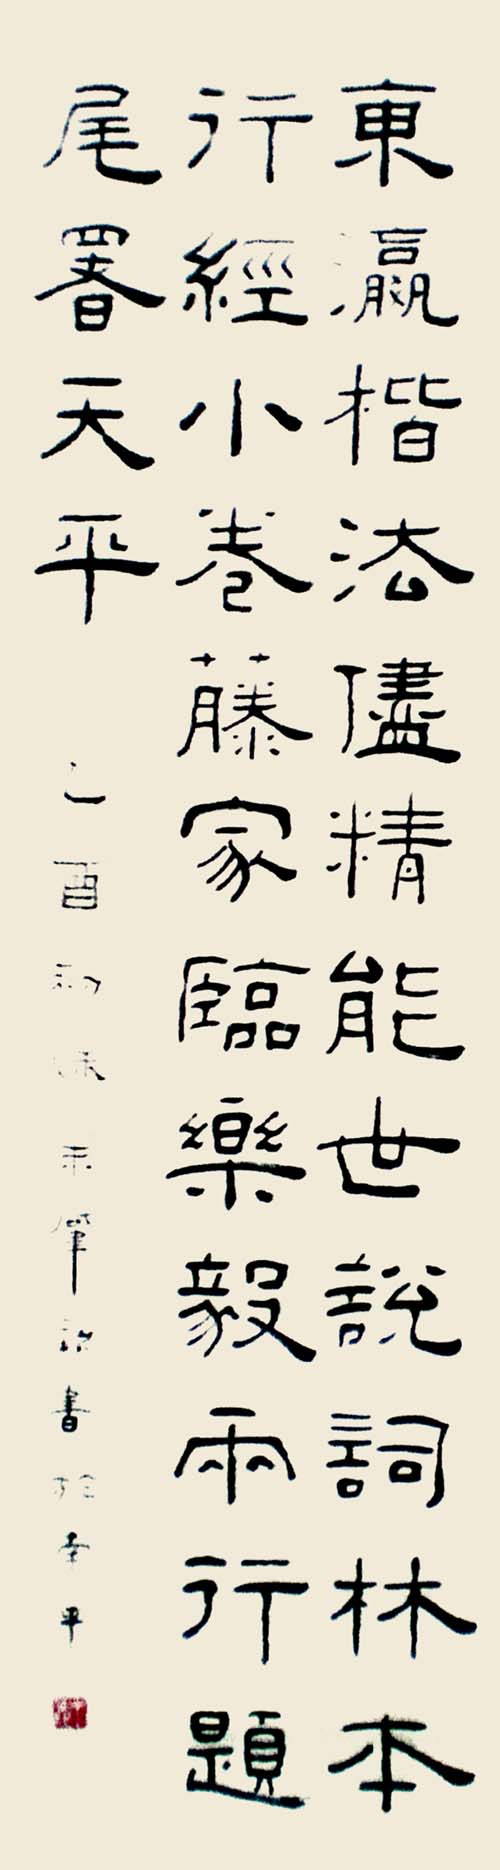 東瀛楷法儘精能世說詞林本
行經小卷藤家臨樂毅兩行題
尾署天平 乙酉 書於 平